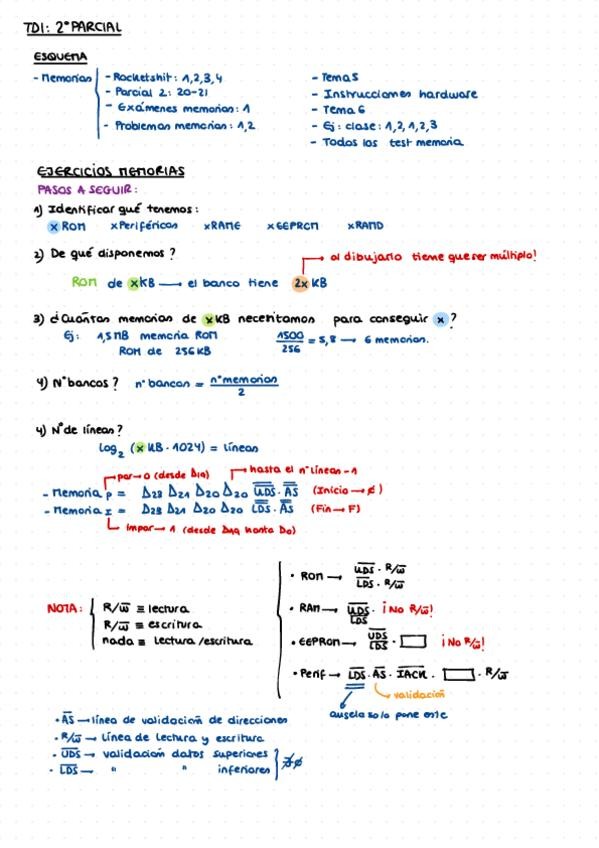 TDI: 2º PARCIAL
ESQUEMA
- Memorias
- Rocketshit: 1,2,3,4
- Parcial 2: 20-21
- Exámenes memorias: 1
- Problemas memorias: 1,2
- Tema 5
- Instrucciones hardware
- Tema 6
- Ej: clase: 1,2,1,2,3
- Todos los test memoria
EJERCICIOS MEMORIAS
PASOS A SEGUIR:
1) Identificar qué tenemos:
x ROM x Periféricos x RAME x EEPROM x RAMD
2) De qué disponemos?
al dibujarlo tiene que ser múltiplo!
ROM de xKB → el banco tiene 2x KB
3) ¿Cuántas memorias de xKB necesitamos para conseguir x?
Ej: 1,5MB memoria ROM
ROM de 256KB
1500/256 = 5,8 → 6 memorias.
4) Nº bancos? nº bancos = nº memorias/2
4) Nº de líneas?
log₂ (x KB · 1024) = líneas
par → 0 (desde A19) hasta el nº líneas - 1
- Memoria P = A23 A21 A20 A20 U̅D̅S̅ · A̅S̅ (Inicio → ø)
- Memoria I = A23 A21 A20 A20 L̅D̅S̅ · A̅S̅ (Fin → F)
impar → 1 (desde A19 hasta A0)
NOTA:
R/w̅ ≡ lectura
R̅/w̅ ≡ escritura
nada ≡ lectura/escritura
· ROM → U̅D̅S̅ · R/w̅
L̅D̅S̅ · R/w̅
· RAM → U̅D̅S̅ · ¡No R/w̅!
L̅D̅S̅
· EEPROM → U̅D̅S̅ · ¡No R/w̅!
L̅D̅S̅
· Perif → L̅D̅S̅ · A̅S̅ · I̅A̅C̅K̅ · · R/w̅
validación
solo pone este
· A̅S̅ → línea de validación de direcciones
· R/w̅ → Línea de lectura y escritura
· U̅D̅S̅ → validación datos superiores
· L̅D̅S̅ → " " inferiores